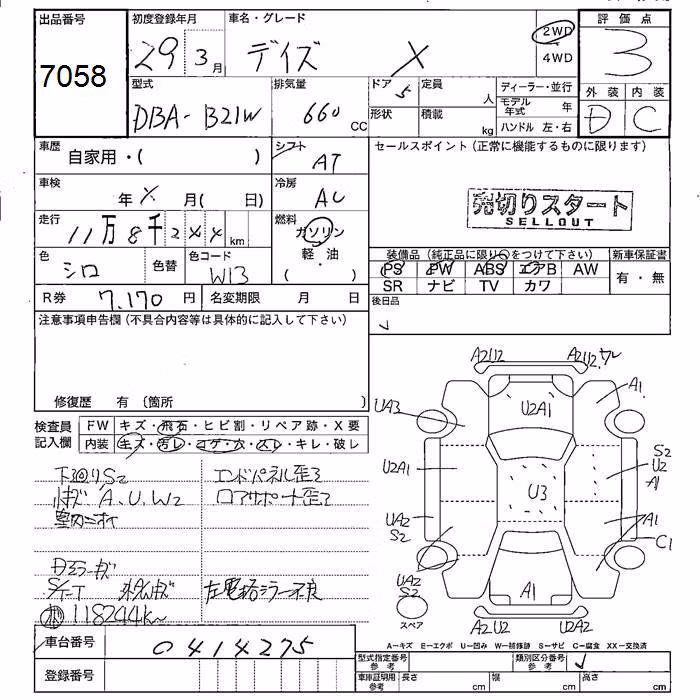 出品番号
7058
初度登録年月
29 3月
車名・グレード
デイズ X
2WD
4WD
評価点
3
外装 内装
D C
型式
DBA-B21W
排気量
660 CC
ドア
5
定員
人
形状
積載
kg
ディーラー・並行
モデル年式 年
ハンドル 左・右
車歴
自家用・( )
シフト
AT
セールスポイント(正常に機能するものに限ります)
売切りスタート
SELLOUT
車検
年 月( 日)
冷房
AC
走行
11万8千244km
燃料
ガソリン
・
軽・油
( )
色
シロ
色替
色コード
W13
装備品(純正品に限り○をつけて下さい)
新車保証書
PS PW ABS エアB AW
SR ナビ TV カワ
有・無
R券 7,170円
名変期限 月 日
後日品
注意事項申告欄(不具合内容等は具体的に記入して下さい)
修復歴 有(箇所 )
検査員記入欄
FW キズ・飛石・ヒビ割・リペア跡・X要
内装 キズ・汚レ・コゲ・穴・スレ・キレ・破レ
下廻りS2
小キズ A、U、W2
室内ニオイ
エンドパネル歪ミ
ロアサポート歪ミ
S/T-T
左電格ミラー不良
118244k
A2U2
A2U2 ワレ
UA3
U2A1
A1
U2A1
U3
S2
U2
A1
UA2
S2
A1
C1
UA2
S2
スペア
A1
A2U2
U2A2
A-キズ E-エクボ U-凹み W-補修跡 S-サビ C-腐食 XX-交換済
車台番号
0414275
登録番号
型式指定番号 参考
類別区分番号 参考
車庫証明用 参考
長さ cm
幅 cm
高さ cm